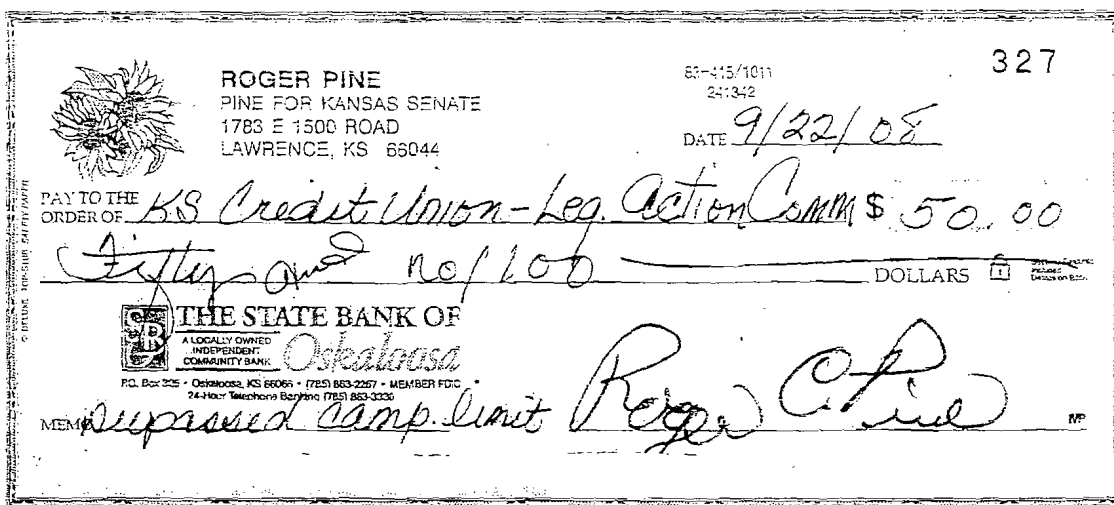 327
ROGER PINE
PINE FOR KANSAS SENATE
1783 E 1500 ROAD
LAWRENCE, KS 66044
83-415/1011
241342
DATE 9/22/08
PAY TO THE
ORDER OF KS Credit Union - Leg. Action Comm $ 50.00
Fifty and no/100 DOLLARS
THE STATE BANK OF
Oskaloosa
SB
A LOCALLY OWNED
INDEPENDENT
COMMUNITY BANK
P.O. Box 335 • Oskaloosa, KS 66066 • (785) 863-2267 • MEMBER FDIC
24-Hour Telephone Banking (785) 863-3330
MEMO Surpassed camp. limit Roger C. Pine MP